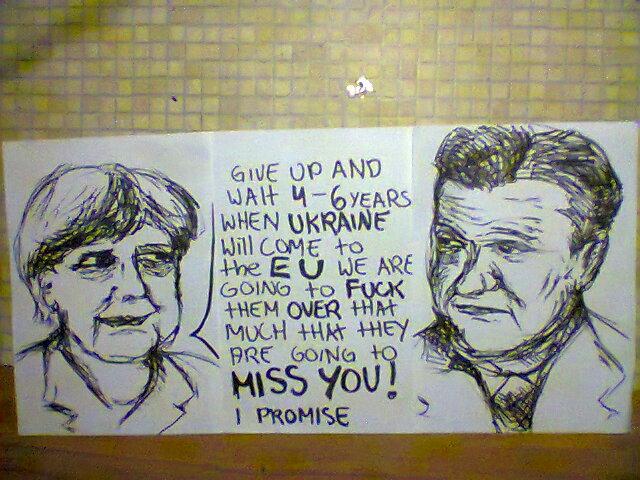 GIVE UP AND
WAIT 4-6 YEARS
WHEN UKRAINE
Will COME to
the EU WE ARE
GOING to FUCK
tHEM OVER tHAt
MUCH tHAt tHEY
ARE GOING to
MISS YOU!
I PROMISE